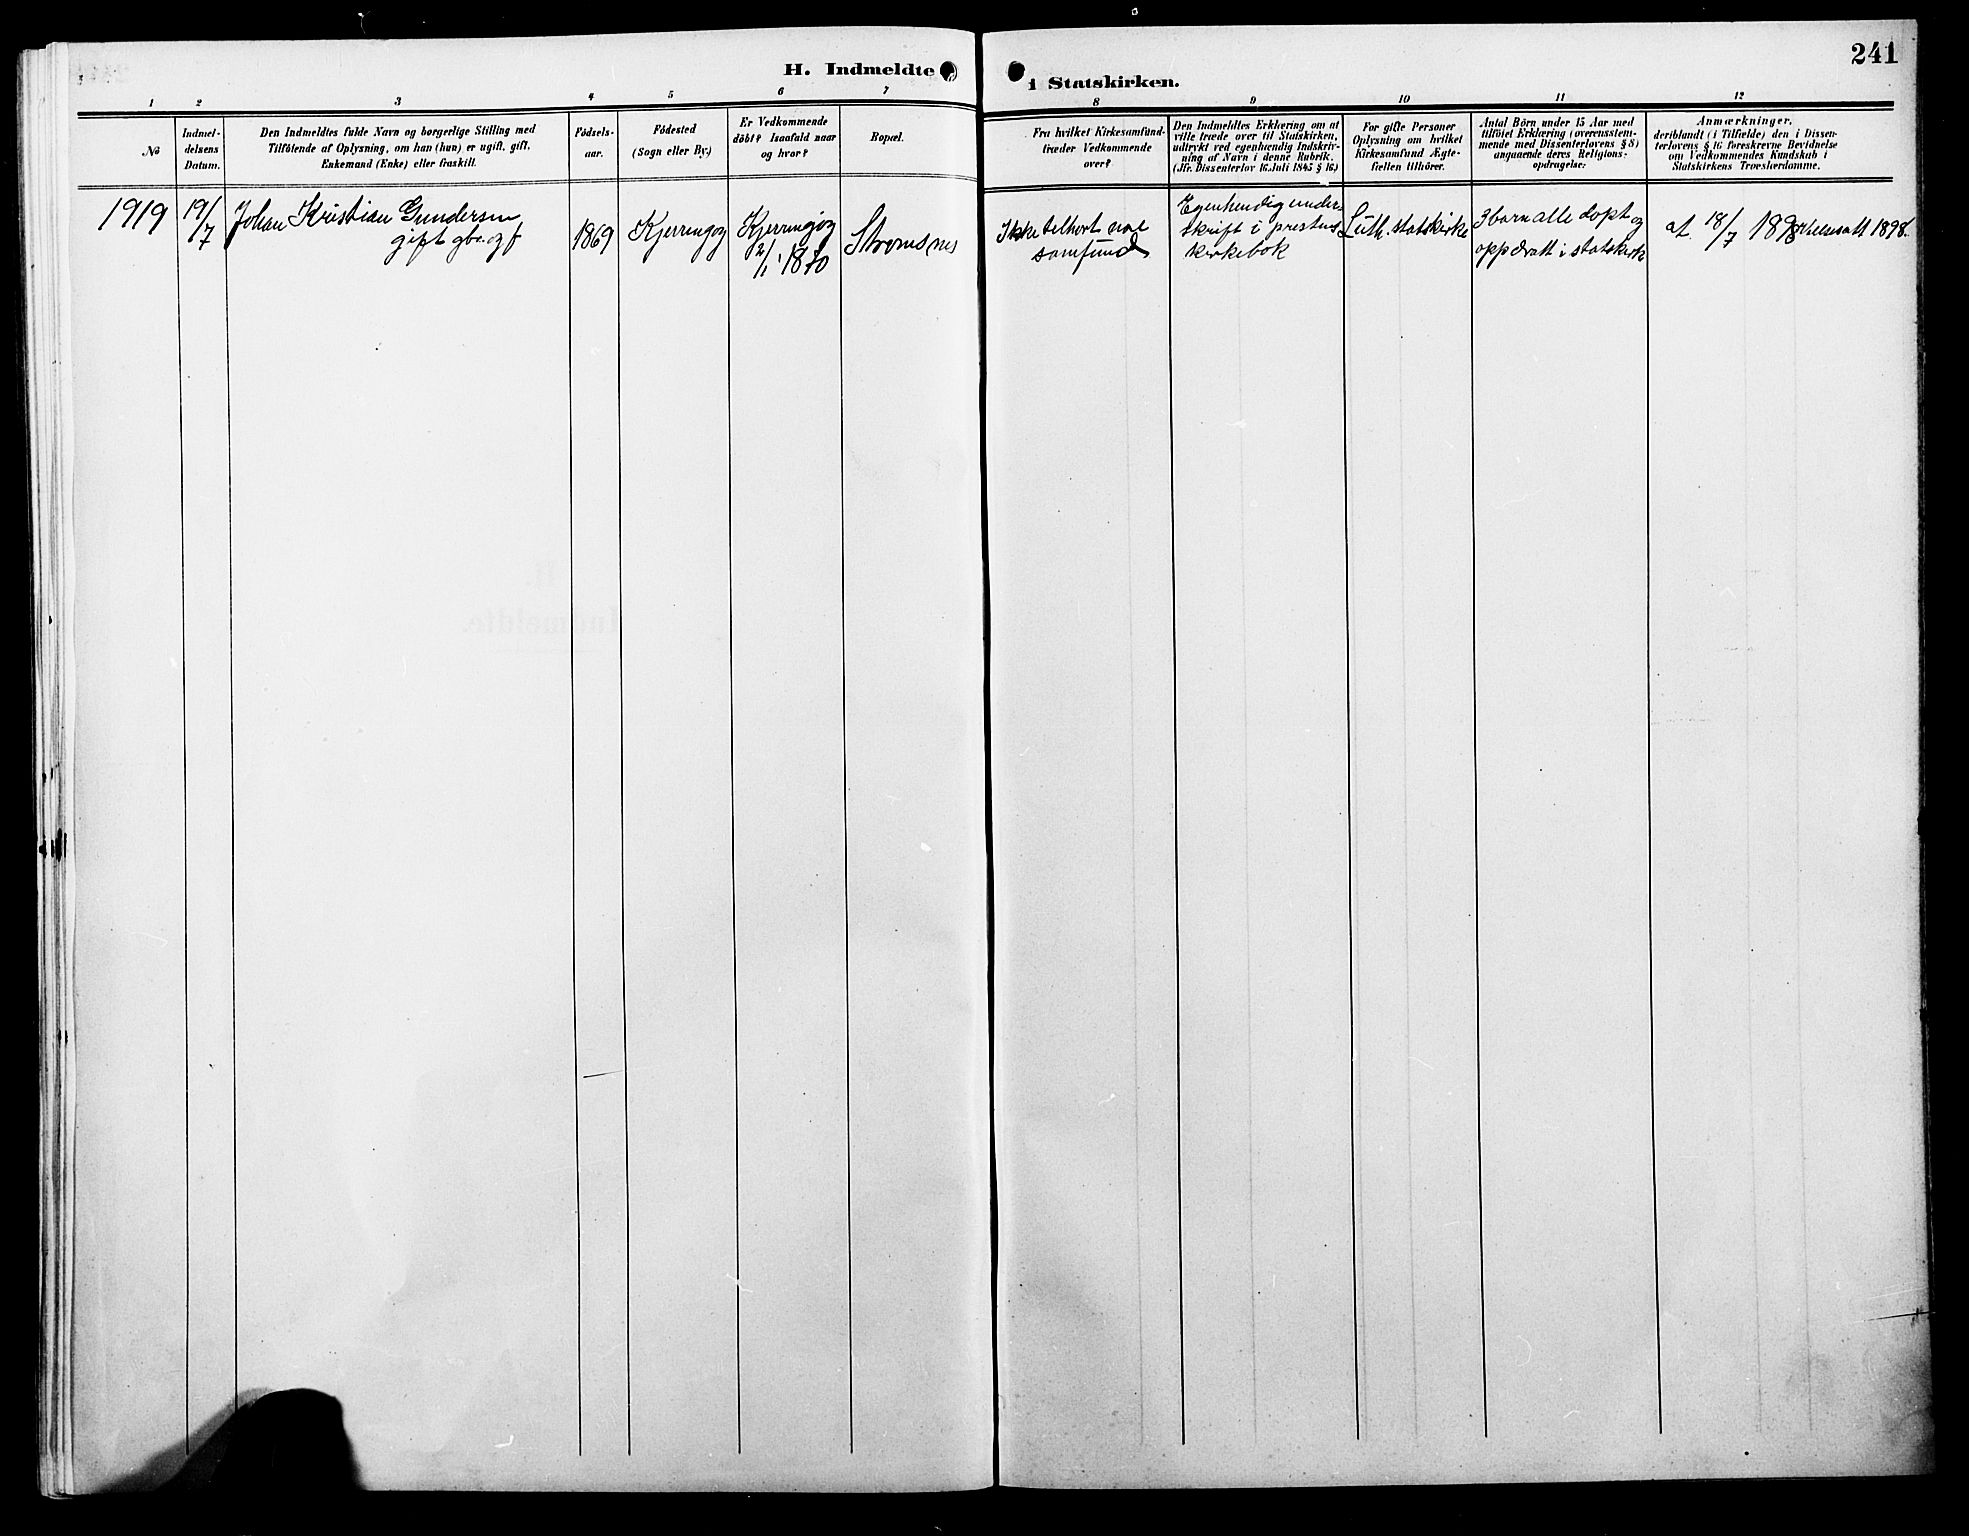 241
H. Indmeldte i Statskirken.
1 2 3 4 5 6 7 8 9 10 11 12
No
Indmel-
delsens
Datum.
Den Indmeldtes fulde Navn og borgerlige Stilling med
Tilföiende af Oplysning, om han (hun) er ugift, gift,
Enkemand (Enke) eller fraskilt.
Födsels-
aar.
Födested
(Sogn eller By.)
Er Vedkommende
döbt? Isaafald naar
og hvor?
Bopæl.
Fra hvilket Kirkesamfund
træder Vedkommende
over?
Den Indmeldtes Erklæring om at
ville træde over til Statskirken,
udtrykt ved egenhændig Indskriv-
ning af Navn i denne Rubrik.
(Jfr. Dissenterlov 16. Juli 1845 § 16.)
For gifte Personer
Oplysning om hvilket
Kirkesamfund Ægte-
fællen tilhörer.
Antal Börn under 15 Aar med
tilföiet Erklæring (overensstem-
mende med Dissenterlovens § 8)
angaaende deres Religions-
opdragelse.
Anmærkninger,
deriblandt (i Tilfælde) den i Dissen-
terlovens § 16 foreskrevne Bevidnelse
om Vedkommendes Kundskab i
Statskirkens Troeslærdomme.
1919
19/7
Johan Kristian Gundersen
gift gbr. og f
1869
Kjerringøy
Kjerringøy
2/1 1870
Strømsnes
Ikke telhort noe
samfund
Egenhendig under-
skrift i prestens
kirkebok
Luth. statskirke
3 barn alle døpt og
oppdratt i statskirk
ut. 18/7 1898
1898.